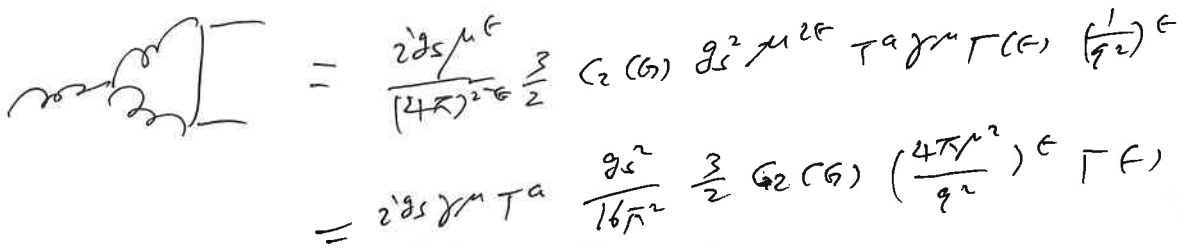 = \frac{i g_s \mu^ε}{(4π)^{2-ε}} \frac{3}{2} C_2(G) g_s^2 μ^{2ε} T^a γ^μ Γ(ε) (\frac{1}{q^2})^ε
= i g_s γ^μ T^a \frac{g_s^2}{16π^2} \frac{3}{2} C_2(G) (\frac{4πμ^2}{q^2})^ε Γ(ε)